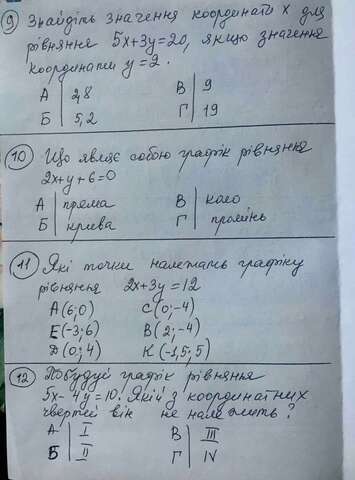 9 Знайдіть значення координати x для
рівняння 5x+3y=20, якщо значення
координати y=2.
А 2,8 В 9
Б 5,2 Г 19
10 Що являє собою графік рівняння
2x+y+6=0
А пряма В коло
Б крива Г промінь
11 Які точки належать графіку
рівняння 2x+3y=12
A(6;0) C(0;-4)
E(-3;6) B(2;-4)
D(0;4) K(-1,5;5)
12 Побудуй графік рівняння
5x-4y=10. Якій з координатних
чвертей він не належить?
А I В III
Б II Г IV